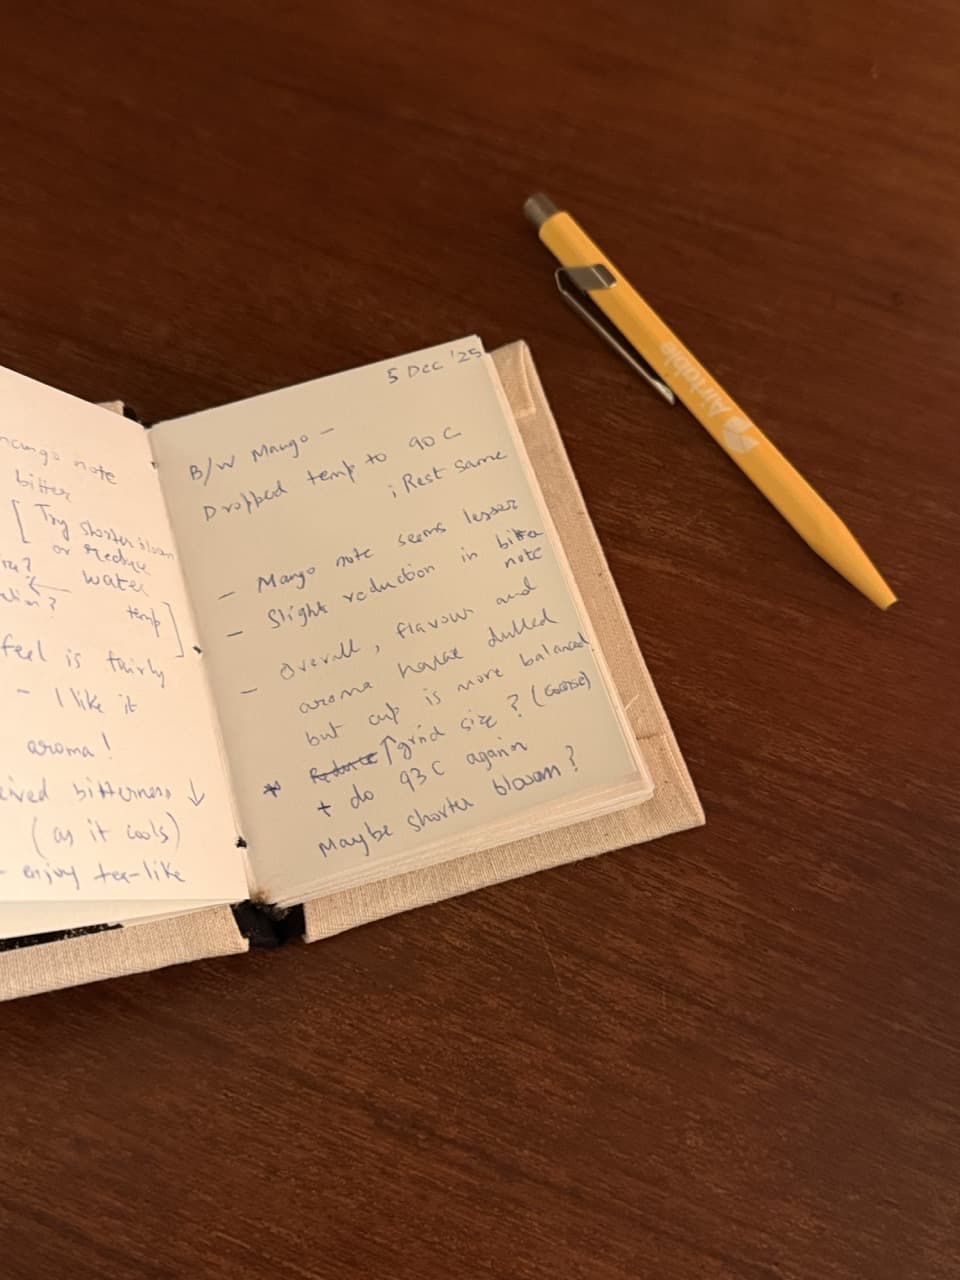 mango note
bitter
[ Try shorter bloom
or reduce
water
temp ]
feel is fairly
- I like it
aroma!
bitterness ↓
(as it cools)
- enjoy tea-like
5 Dec '25
B/W Mango -
Dropped temp to 90 C
; Rest same
- Mango note seems lesser
- Slight reduction in bitter
note
- Overall, flavour and
aroma have dulled
but cup is more balanced
* Reduce ↑ grid size? (coarse)
+ do 93 C again
Maybe shorter bloom?
Airtable